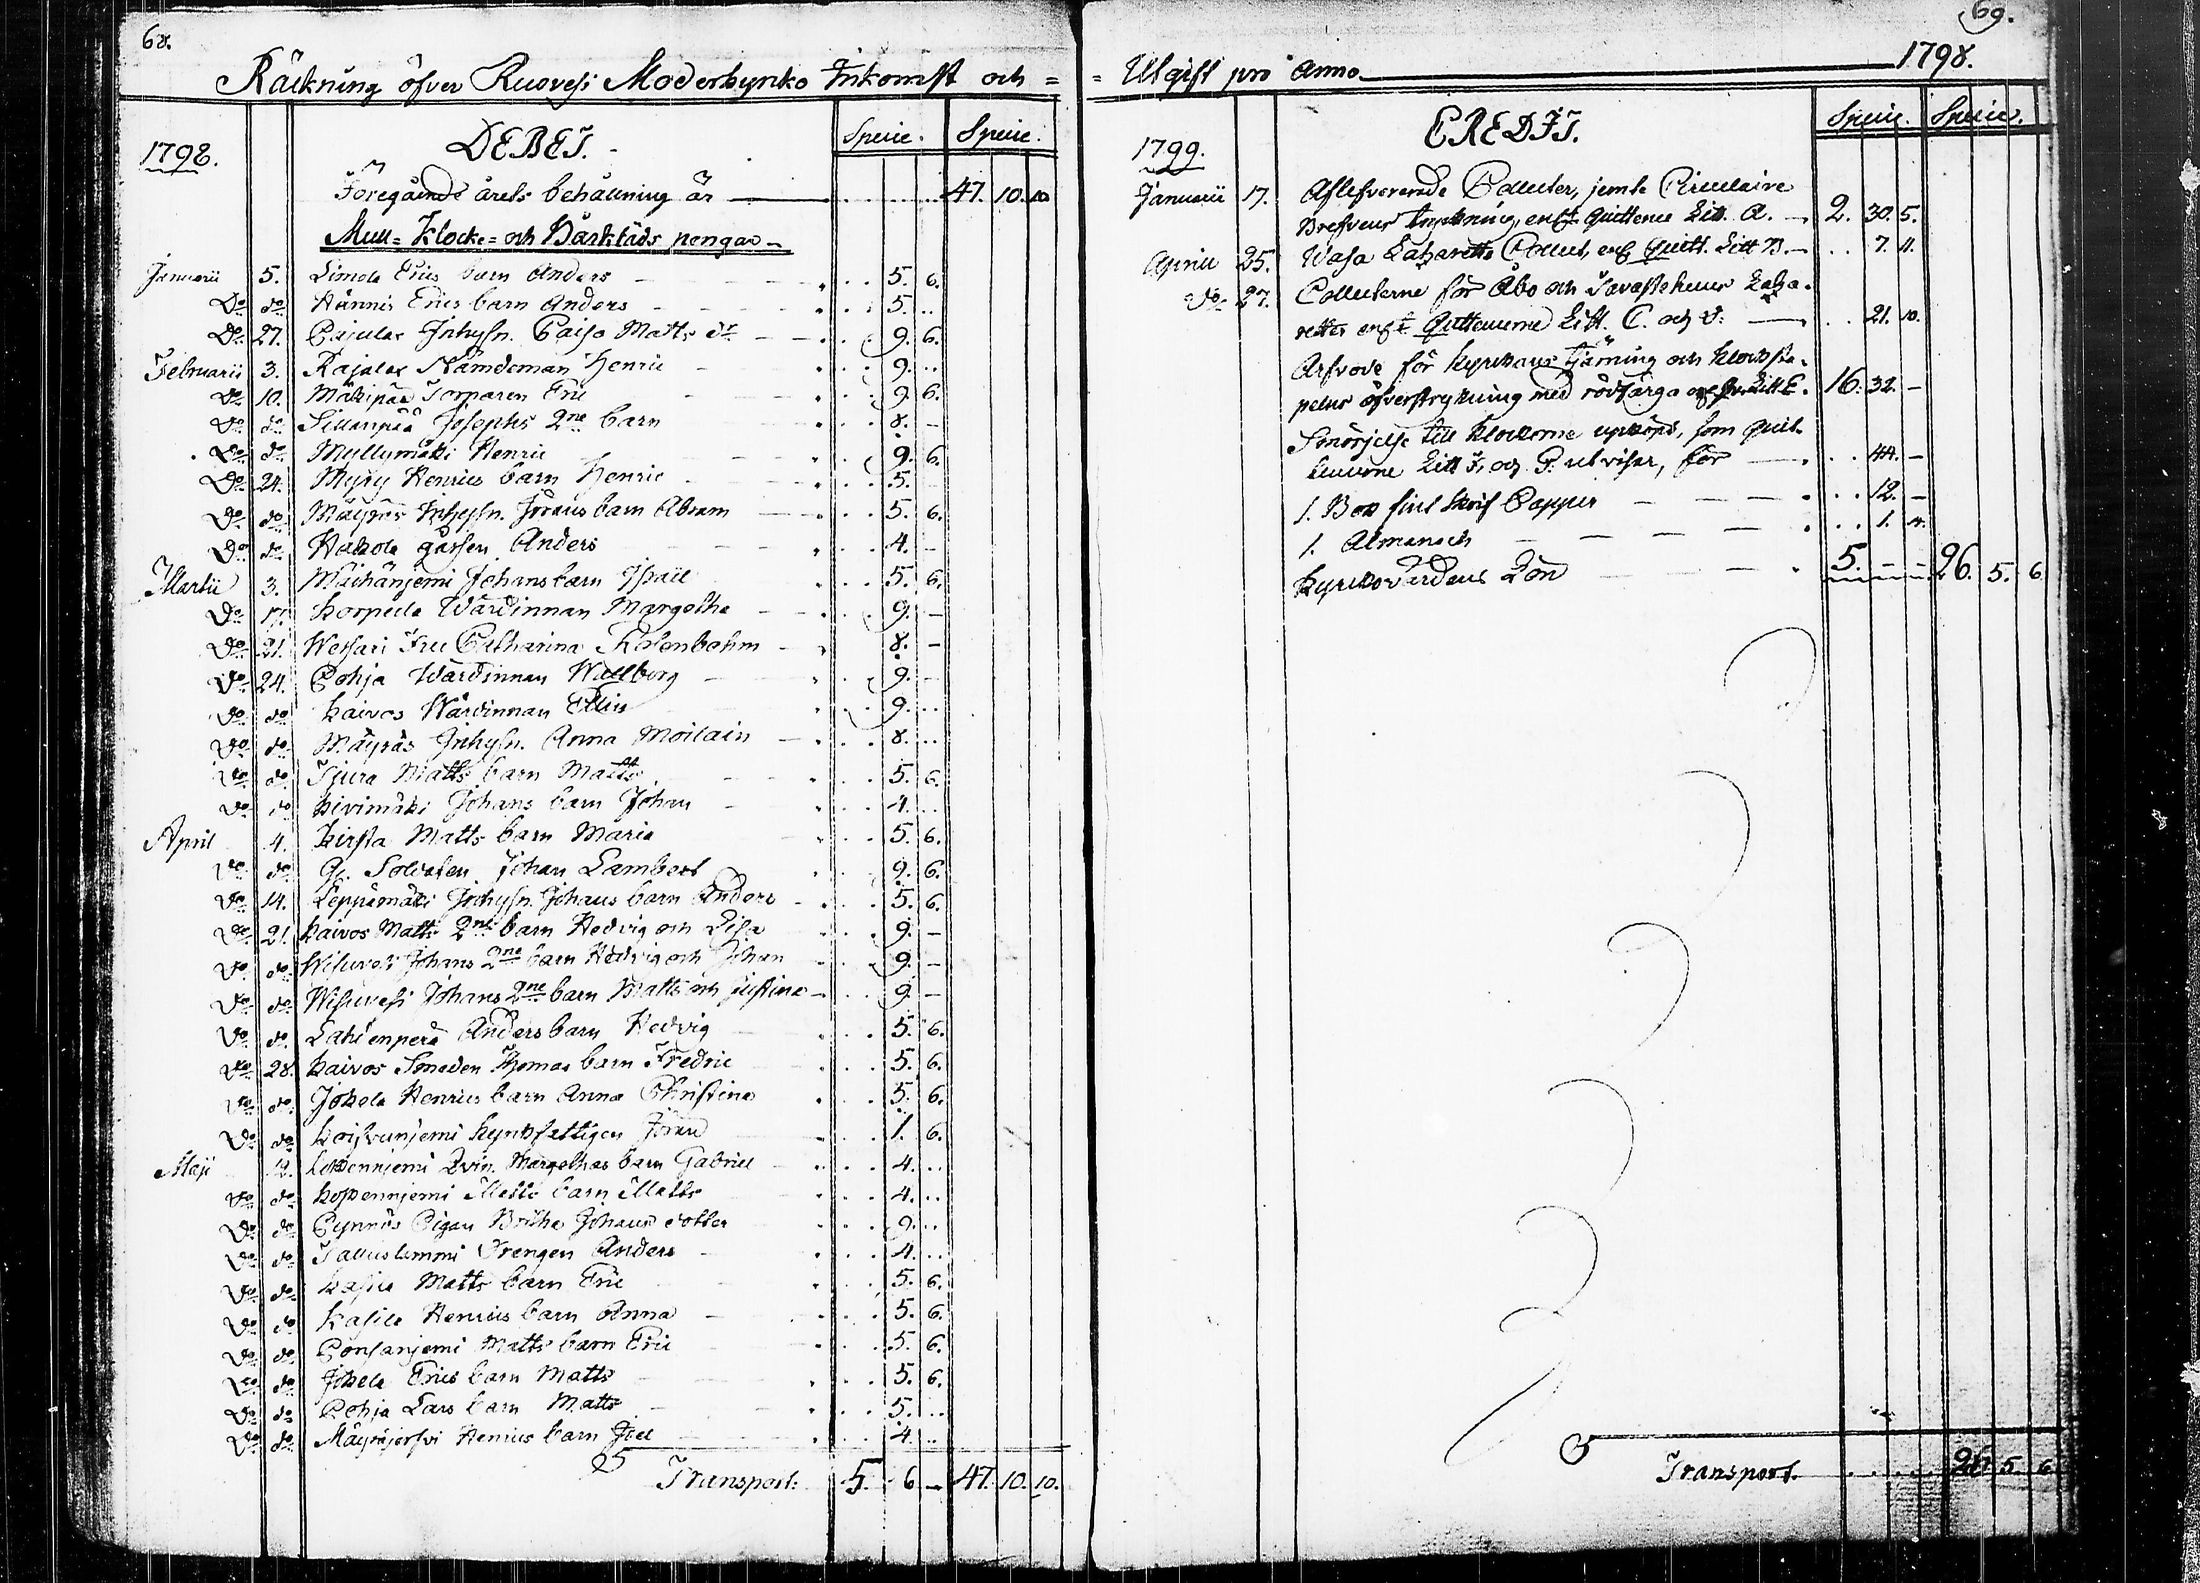 68.
Räkning öfver Ruovesi Moderkyrko Inkomst och =
1798.
DEBET.
Specie. Specie.
Föregående årets behållning är 47. 10. 10
Mull= Klocke= och Bårklädspengar
Januarii 5. Limola Erics barn Anders 5. 6.
Do do Hännis Erics barn Anders 5. ..
Do 27. Pajulax Inhysn. Caisa Matts dr 9. 6.
Februarii 3. Rajalax Nämdeman Henric 9. ..
do 10. Mäkipää Torparen Eric 9. 6.
Do do Sillanpää Josephs 2ne barn 8. –
Do do Myllymäki Henric 9. 6.
Do 24. Myry Henrics barn Henric 5.
Do do Mäyräs Inhysn. Jörans barn Abram 5. 6.
Do do Hakola gossen Anders 4. –
Martii 3. Johans barn Israel 5. 6.
Do 17. Korpula Wärdinnan Margetha 9. –
Do 21. Fru Catharina Rosenbohm 8. –
Do 24. Pohja Wärdinnan Wallborg 9. –
Do do Kaivos Wärdinnan Ellin 9. ..
Do do Mäyräs Inhysn. Anna Moilain 8. ..
Do do Tjura Matts barn Matts 5. 6.
Do do Kivimäki Johans barn Johan 4. ..
April 4. Kirsta Matts barn Maria 5. 6.
Do do G. Soldaten Johan Lambert 9. 6.
Do 14. Leppämäki Inhysn. Johans barn Anders 5. 6.
Do 21. Kaivos Matts 2ne barn Hedvig och Lisa 9. –
Do do Wisuvesi Johans 2ne barn Hedvig och Johan 9. –
Do do Wisuvesi Johans 2ne barn Matts och Justina 9. –
Do do Lahdenperä Anders barn Hedvig 5. 6.
Do 28. Kaivos Smeden Thomas barn Fredric 5. 6.
Do do Jokela Henrics barn Anna Christina 5. 6.
Do do Kyrkfattigen Jöran 1. 6.
Maji 12. Margethas barn Gabriel 4. ..
Do do Matts barn Matts 4. ..
Do do Pynnös Pigan Britha Johans dotter 9. ..
Do do Drengen Anders 4. ..
Do do Kasila Matts barn Eric 5. 6.
Do do Kasila Henrics barn Anna 5. 6.
Do do Ponsanjemi Matts barn Eric 5. 6.
Do do Jokela Erics barn Matts 5. 6.
Do do Pohja Lars barn Matts 5. ..
Do do Mäyräjerfvi Henrics barn Joel 4. ..
Transport: 5. 6 – 47. 10. 10.
69.
= Utgift pro anno 1798.
1799.
CREDIT.
Specie. Specie.
Januarii 17. Aflefvererade Collecter, jemte Circulaire
Brefvens tryckning, enl. Quittence Litt. A. 2. 30. 5.
Aprill 25. Wasa Lazaretts Collect, enl. Quitt. Litt B. 7. 11.
do 27. Collecterne för Åbo och Tavastehuus Laza-
retter enl. Quittencerne Litt. C. och D. 21. 10.
Arfvode för kyrkans tjärning och klocksta-
pelns öfverstrykning med rödfärga Litt E. 16. 32. –
Smörjelse till klockorne upköpt, som Quit-
tencerne Litt F. och G. utvisar, för 44. –
1. Bok fint Skrif Papper 12. –
1. Almanach 1. 4.
Kyrkovärdens Lön 5. – – 26. 5. 6.
Transport. 26. 5. 6.